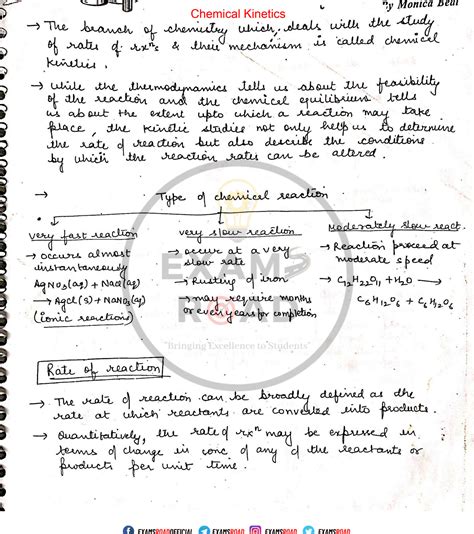 Chemical Kinetics
By Monica Bedi
→ The branch of chemistry which deals with the study
of rates of rxns & their mechanism is called chemical
kinetics.
→ While the thermodynamics tells us about the feasibility
of the reaction and the chemical equilibrium tells
us about the extent upto which a reaction may take
place, the kinetic studies not only help us to determine
the rate of reaction but also describe the conditions
by which the reaction rates can be altered.
→ Type of chemical reaction
very fast reaction
→ occurs almost
instantaneously
AgNO3(aq) + NaCl(aq)
→ AgCl(s) + NaNO3(aq)
(ionic reactions)
very slow reaction
→ occur at a very
slow rate
→ Rusting of iron
→ may require months
or even years for completion
Moderately slow react.
→ Reaction proceed at
moderate speed
→ C12H22O11 + H2O →
C6H12O6 + C6H12O6
EXAMS
ROAD
"Bringing Excellence to Students"
Rate of reaction
→ The rate of reaction can be broadly defined as the
rate at which reactants are converted into products.
→ Quantitatively, the rate of rxn may be expressed in
terms of change in conc of any of the reactants or
products per unit time.
EXAMSROADOFFICIAL EXAMSROAD EXAMSROAD EXAMSROAD